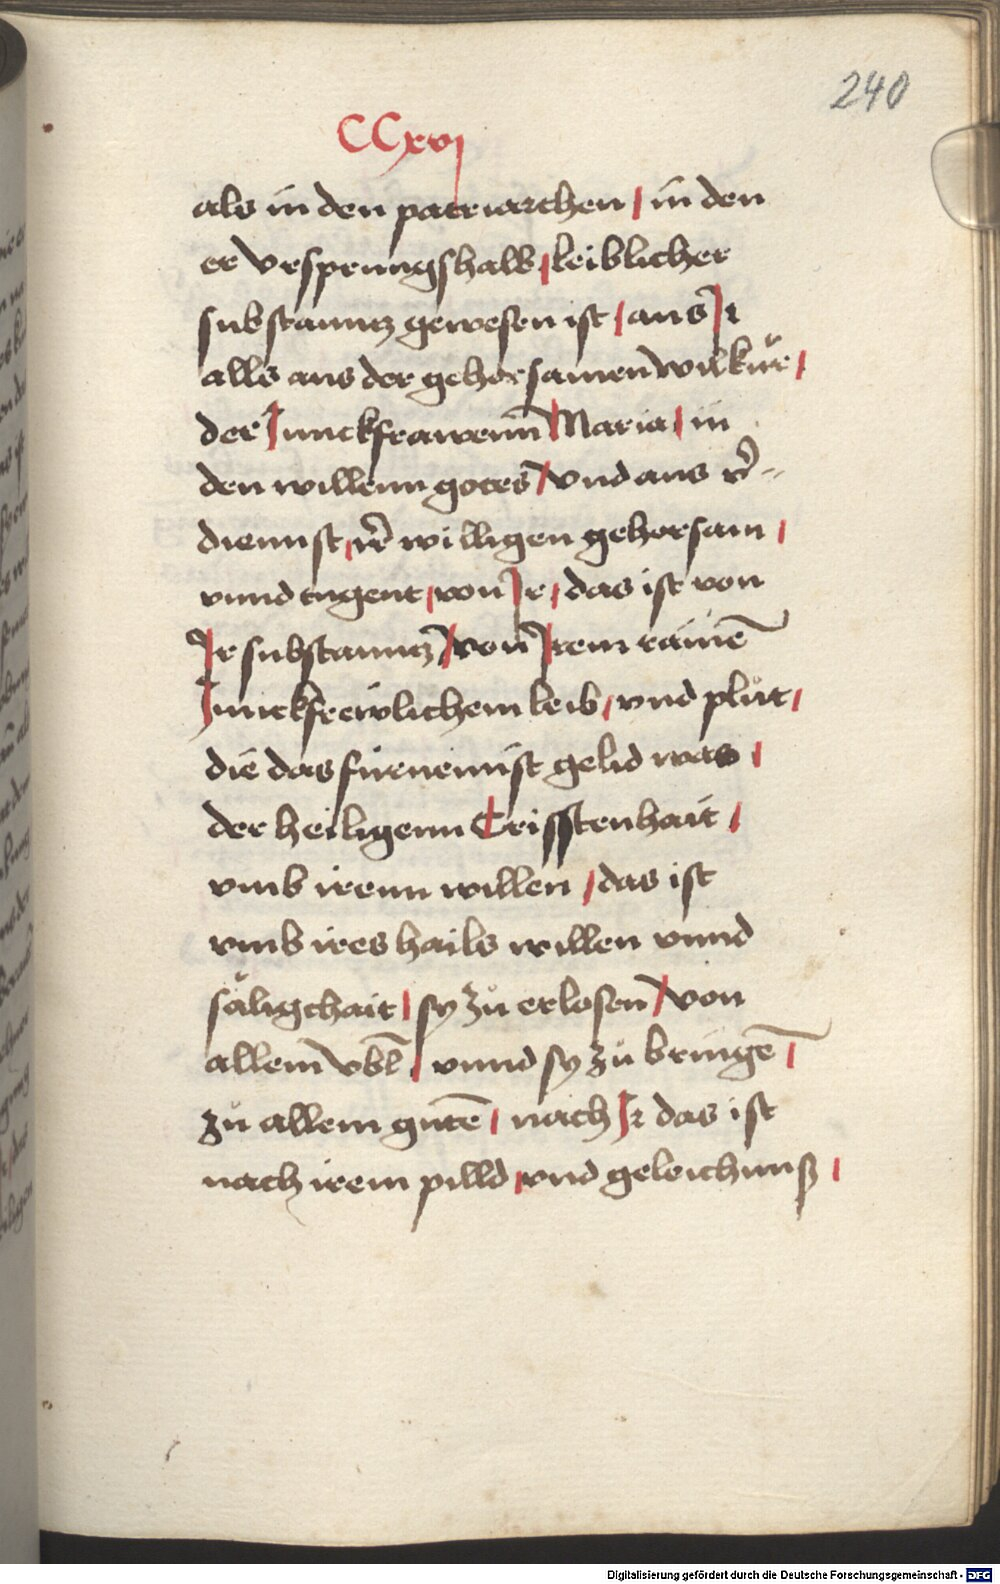 240
CCxvj
als in den patriarchen / in den
er vrsprungshalb / leiblicher
substanntz gewesen ist / aus Ir
alls aus der gehorsamen wilkür /
der Junckfrawenn Maria / in
den willenn gotes / vnd aus
diennst / willigen gehorsam /
vnnd tugent / von Ir / das ist von
Ir substanntz / von Irem rainē
Junckfreẅlichem leib / vnd plůt /
die das fürnemist gelid was /
der heiligenn Crisstenhait /
vmb irenn willen / das ist
vmb ires hails willen vnnd
säligchait / sy zů erlosen / von
allem vbl̄ / vnnd sy zů bringē /
zů allem gutē / nach Ir das ist
nach irem pilld / vnd geleichnuß /
Digitalisierung gefördert durch die Deutsche Forschungsgemeinschaft - DFG